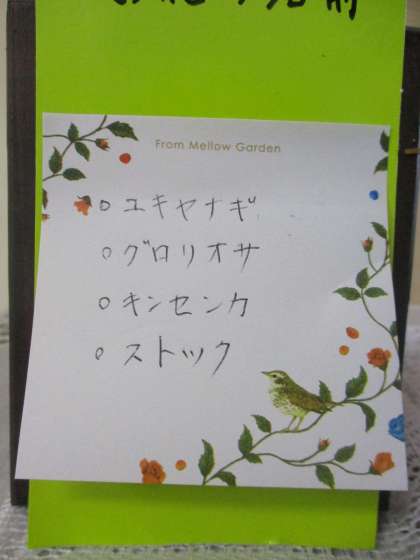 お花の名前
From Mellow Garden
○ユキヤナギ
○グロリオサ
○キンセンカ
○ストック